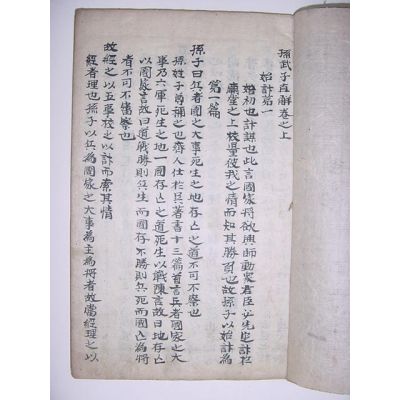 孫武子直解卷之上
始計第一
始初也計謀也此言國家將欲興師動衆君臣必先定計於
廟堂之上校量彼我之情而知其勝負也故孫子以始計為
第一篇
孫子曰兵者國之大事死生之地存亡之道不可不察也
孫姓子稱之也齊人仕於吳著書十三篇首言兵者國家之大
事乃六軍死生之地一國存亡之道死生以戰陳言故曰地存亡
以國家言故曰道戰勝則兵生而國存不勝則兵死而國亡為將
者不可不審察也
故經之以五事校之以計而索其情
經者理也孫子以兵為國家之大事為主為將者故當經理之以